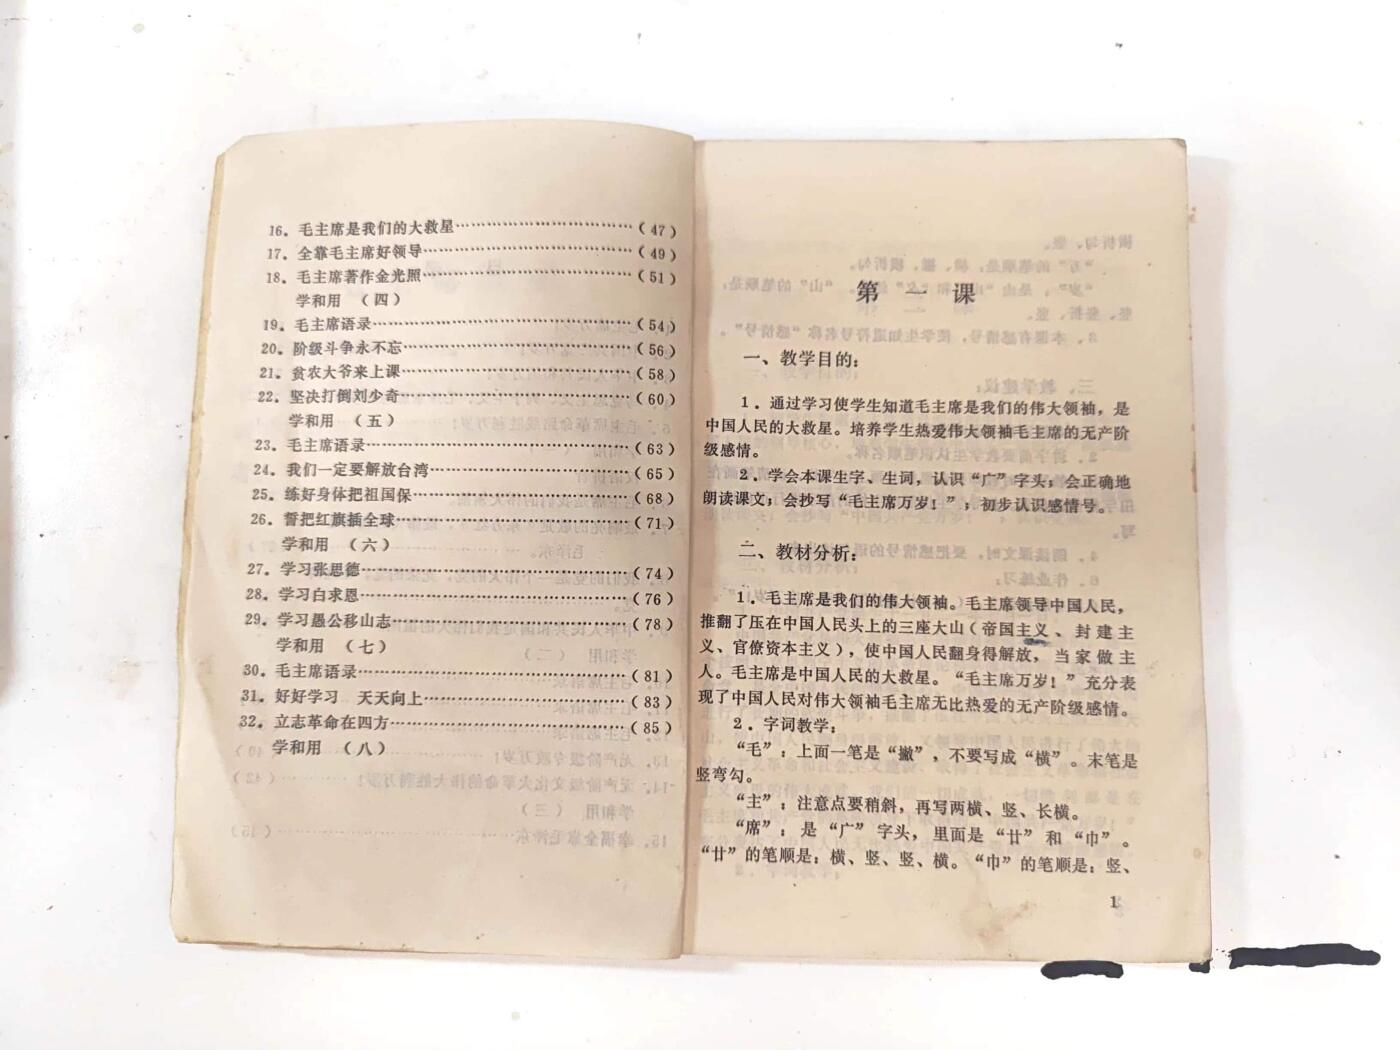 16．毛主席是我们的大救星……………………（47）
17．全靠毛主席好领导……………………（49）
18．毛主席著作金光照……………………（51）
学和用　（四）
19．毛主席语录……………………（54）
20．阶级斗争永不忘……………………（56）
21．贫农大爷来上课……………………（58）
22．坚决打倒刘少奇……………………（60）
学和用　（五）
23．毛主席语录……………………（63）
24．我们一定要解放台湾……………………（65）
25．练好身体把祖国保……………………（68）
26．誓把红旗插全球……………………（71）
学和用　（六）
27．学习张思德……………………（74）
28．学习白求恩……………………（76）
29．学习愚公移山志……………………（78）
学和用　（七）
30．毛主席语录……………………（81）
31．好好学习　天天向上……………………（83）
32．立志革命在四方……………………（85）
学和用　（八）
第一课
一、教学目的：
1．通过学习使学生知道毛主席是我们的伟大领袖，是
中国人民的大救星。培养学生热爱伟大领袖毛主席的无产阶
级感情。
2．学会本课生字、生词，认识“广”字头；会正确地
朗读课文；会抄写“毛主席万岁！”；初步认识感情号。
二、教材分析：
1．毛主席是我们的伟大领袖。毛主席领导中国人民，
推翻了压在中国人民头上的三座大山（帝国主义、封建主
义、官僚资本主义），使中国人民翻身得解放，当家做主
人。毛主席是中国人民的大救星。“毛主席万岁！”充分表
现了中国人民对伟大领袖毛主席无比热爱的无产阶级感情。
2．字词教学：
“毛”：上面一笔是“撇”，不要写成“横”。末笔是
竖弯勾。
“主”：注意点要稍斜，再写两横、竖、长横。
“席”：是“广”字头，里面是“廿”和“巾”。
“廿”的笔顺是：横、竖、竖、横。“巾”的笔顺是：竖、
1